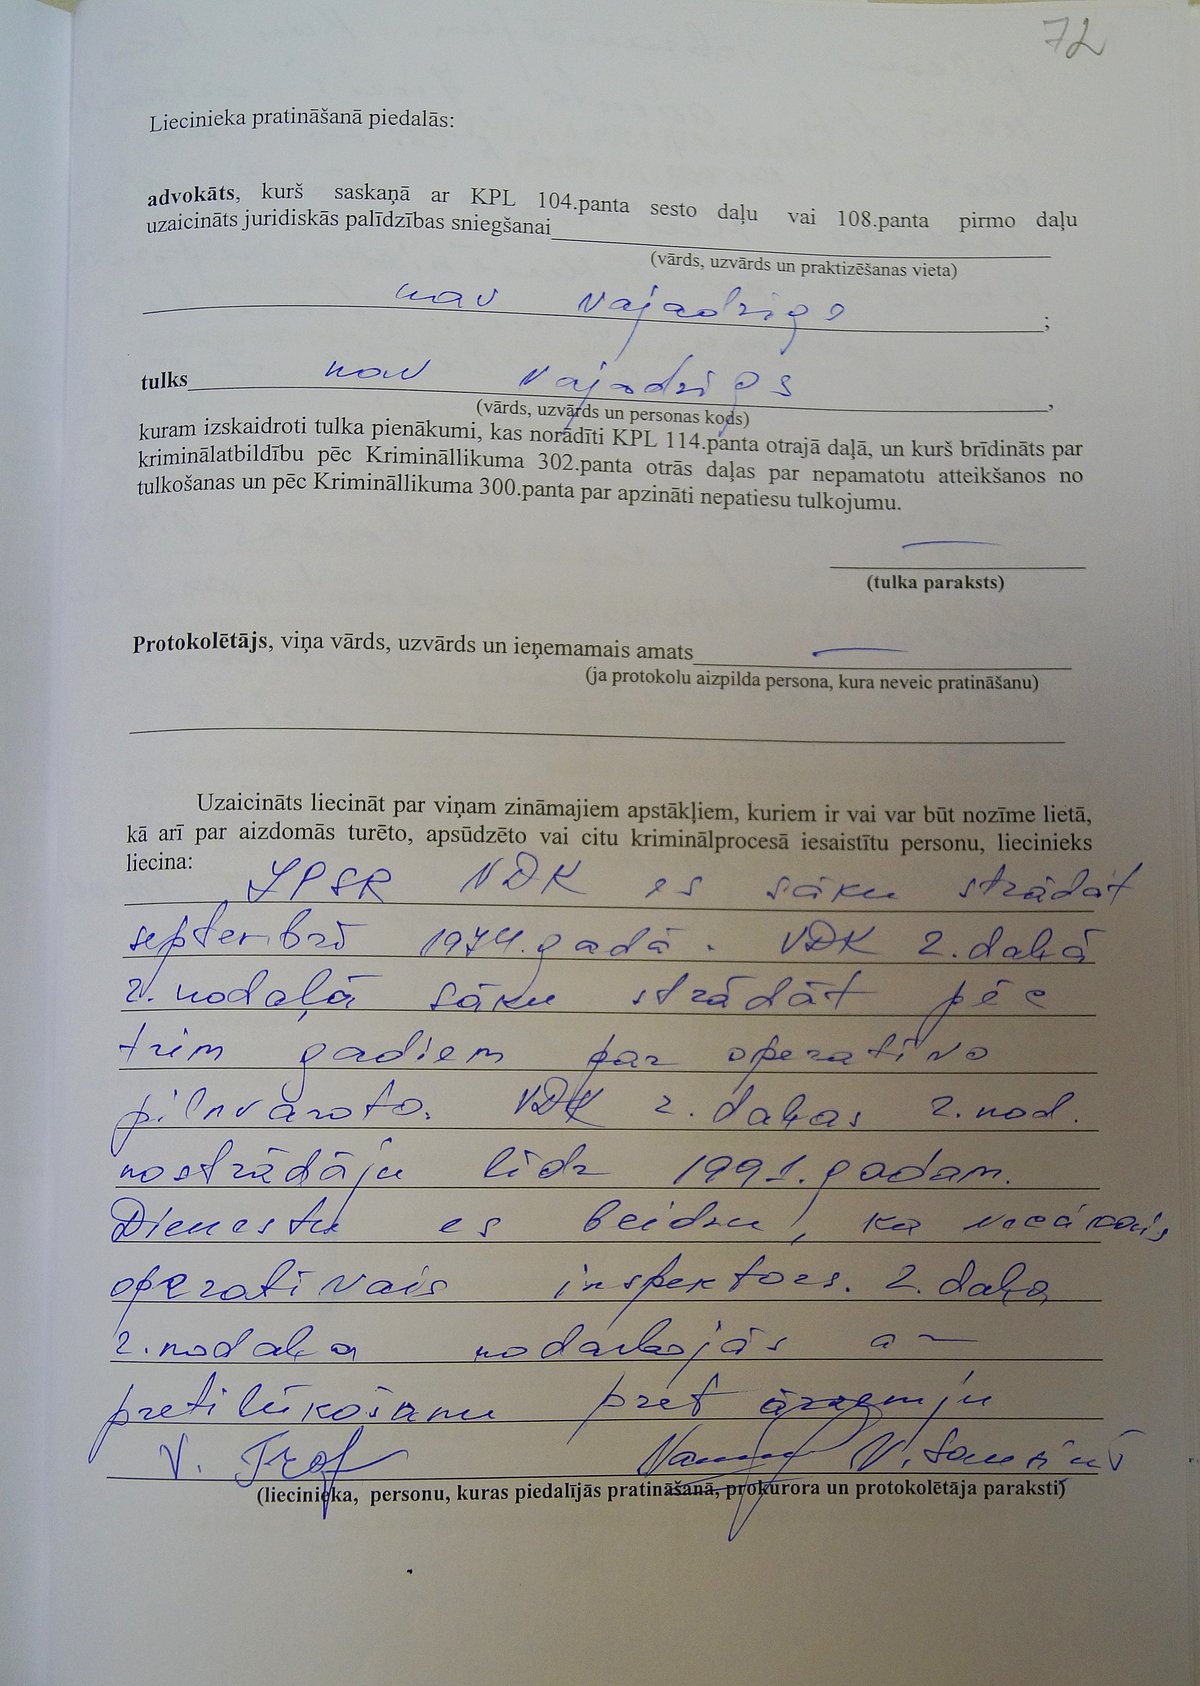 72
Liecinieka pratināšanā piedalās:
advokāts, kurš saskaņā ar KPL 104.panta sesto daļu vai 108.panta pirmo daļu
uzaicināts juridiskās palīdzības sniegšanai
(vārds, uzvārds un praktizēšanas vieta)
nav vajadzīgs ;
tulks nav vajadzīgs ,
(vārds, uzvārds un personas kods)
kuram izskaidroti tulka pienākumi, kas norādīti KPL 114.panta otrajā daļā, un kurš brīdināts par
kriminālatbildību pēc Krimināllikuma 302.panta otrās daļas par nepamatotu atteikšanos no
tulkošanas un pēc Krimināllikuma 300.panta par apzināti nepatiesu tulkojumu.
(tulka paraksts)
Protokolētājs, viņa vārds, uzvārds un ieņemamais amats
(ja protokolu aizpilda persona, kura neveic pratināšanu)
Uzaicināts liecināt par viņam zināmajiem apstākļiem, kuriem ir vai var būt nozīme lietā,
kā arī par aizdomās turēto, apsūdzēto vai citu kriminālprocesā iesaistītu personu, liecinieks
liecina:
LPSR VDK es sāku strādāt
septembrī 1974.gadā. VDK 2.daļā
2.nodaļā sāku strādāt pēc
trim gadiem par operatīvo
pilnvaroto. VDK 2.daļas 2.nod.
nostrādāju līdz 1991.gadam.
Dienestu es beidzu, kā vecākais
operatīvais inspektors. 2.daļa
2.nodaļa nodarbojās ar
pretizlūkošanu pret ārzemju
V. Trof
(liecinieka, personu, kuras piedalījās pratināšanā, prokurora un protokolētāja paraksti)